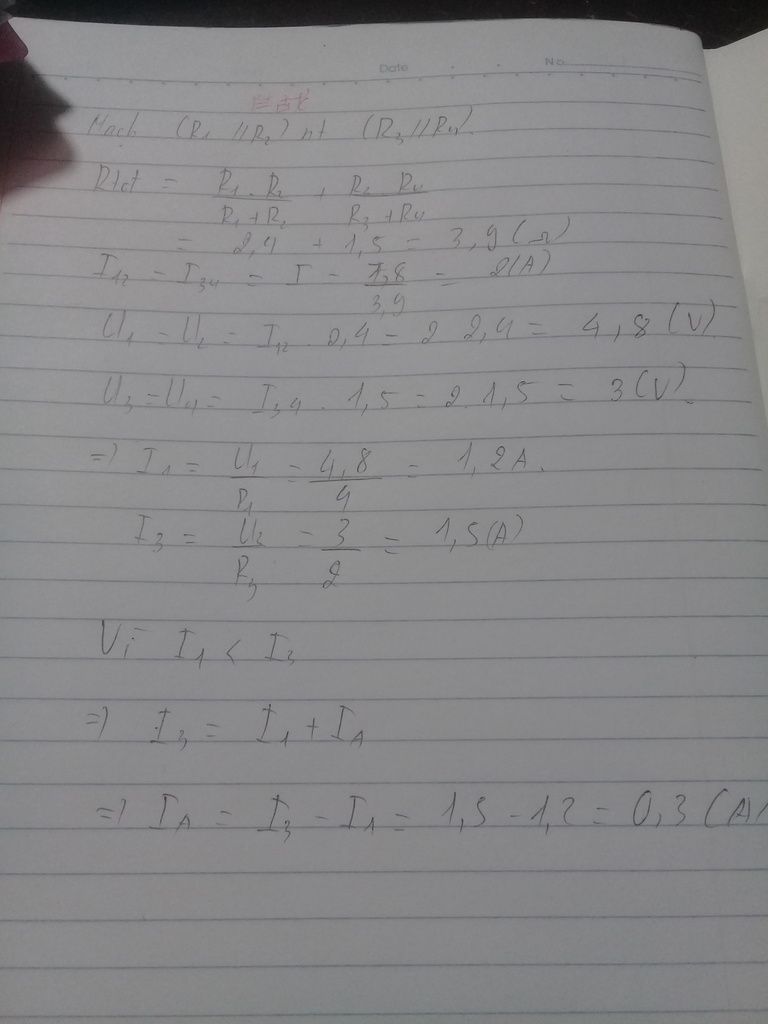 Date No
Mạch (R1 // R2) nt (R3 // R4).
Rtđ = R1 . R2 / R1 + R2 + R3 . R4 / R3 + R4
= 2,4 + 1,5 = 3,9 (Ω)
I12 = I34 = I = 7,8 / 3,9 = 2(A)
U1 = U2 = I12 . 2,4 = 2 . 2,4 = 4,8 (V)
U3 = U4 = I34 . 1,5 = 2 . 1,5 = 3 (V).
=> I1 = U1 / R1 = 4,8 / 4 = 1,2A.
I3 = U3 / R3 = 3 / 2 = 1,5(A)
Vì I1 < I3
=> I3 = I1 + IA
=> IA = I3 - I1 = 1,5 - 1,2 = 0,3 (A)